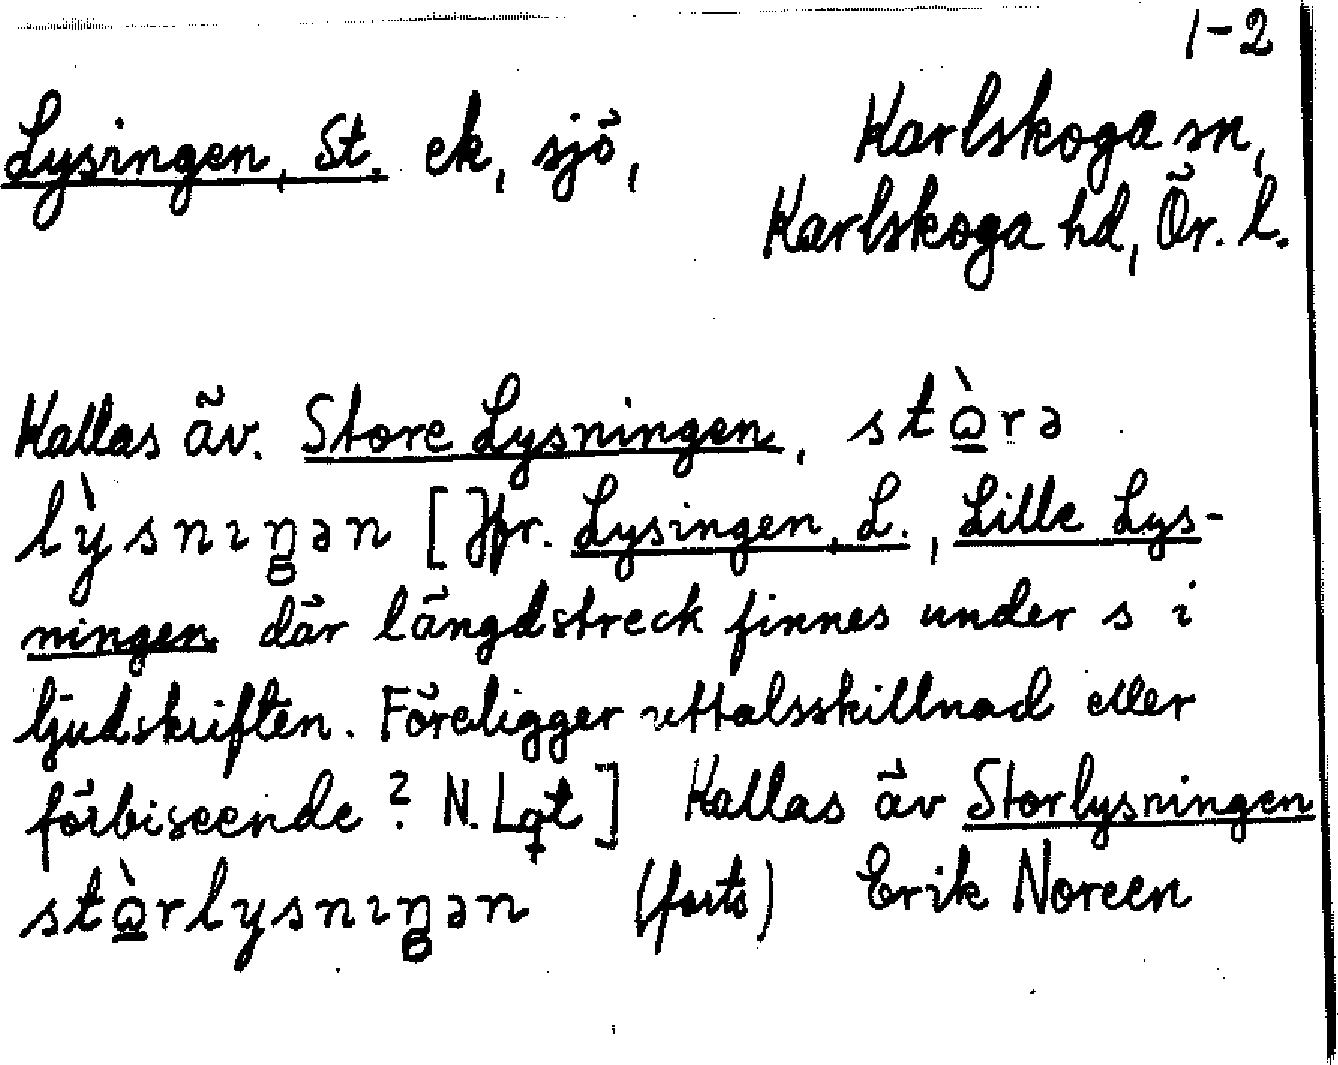 1-2
Lysingen, St. ek, sjö, Karlskoga sn,
Karlskoga hd, Ör. l.
Kallas äv. Store Lysningen, stɷ̀rə
lỳsnıŋən [Jfr. Lysingen, L., Lille Lys-
ningen där längdstreck finnes under s i
ljudskriften. Föreligger uttalsskillnad eller
förbiseende? N. Lqt] Kallas äv Storlysningen
stɷ̀rlysnıŋən (forts) Erik Noreen